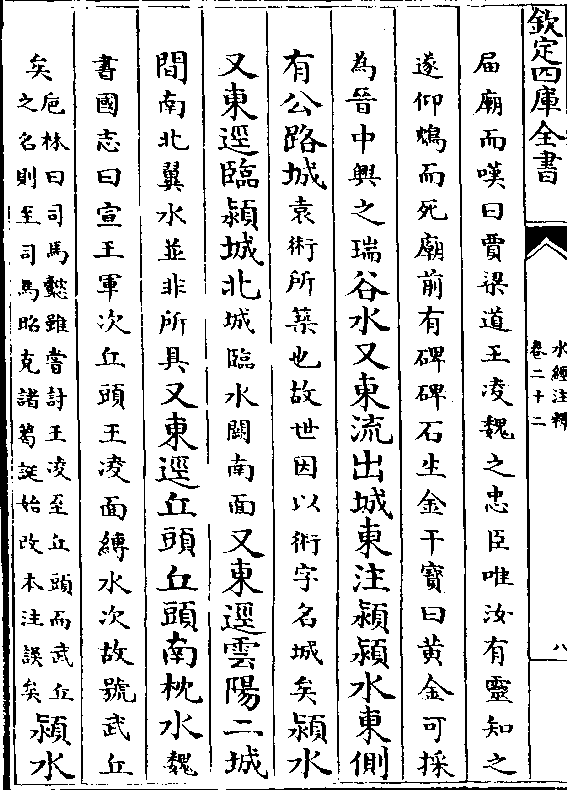 欽定四庫全書
水經注釋
卷二十二
八
屆廟而嘆曰賈梁道王凌魏之忠臣唯汝有靈知之
遂仰鴆而死廟前有碑碑石生金干寶曰黃金可採
為晉中興之瑞谷水又東流出城東注潁潁水東側
有公路城袁術所築也故世因以術字名城矣潁水
又東逕臨潁城北城臨水闕南面又東逕雲陽二城
間南北翼水並非所具又東逕丘頭丘頭南枕水魏
書國志曰宣王軍次丘頭王凌面縛水次故號武丘
矣巵林曰司馬懿雖嘗討王凌至丘頭而武丘
之名則至司馬昭克諸葛誕始改本注誤矣潁水